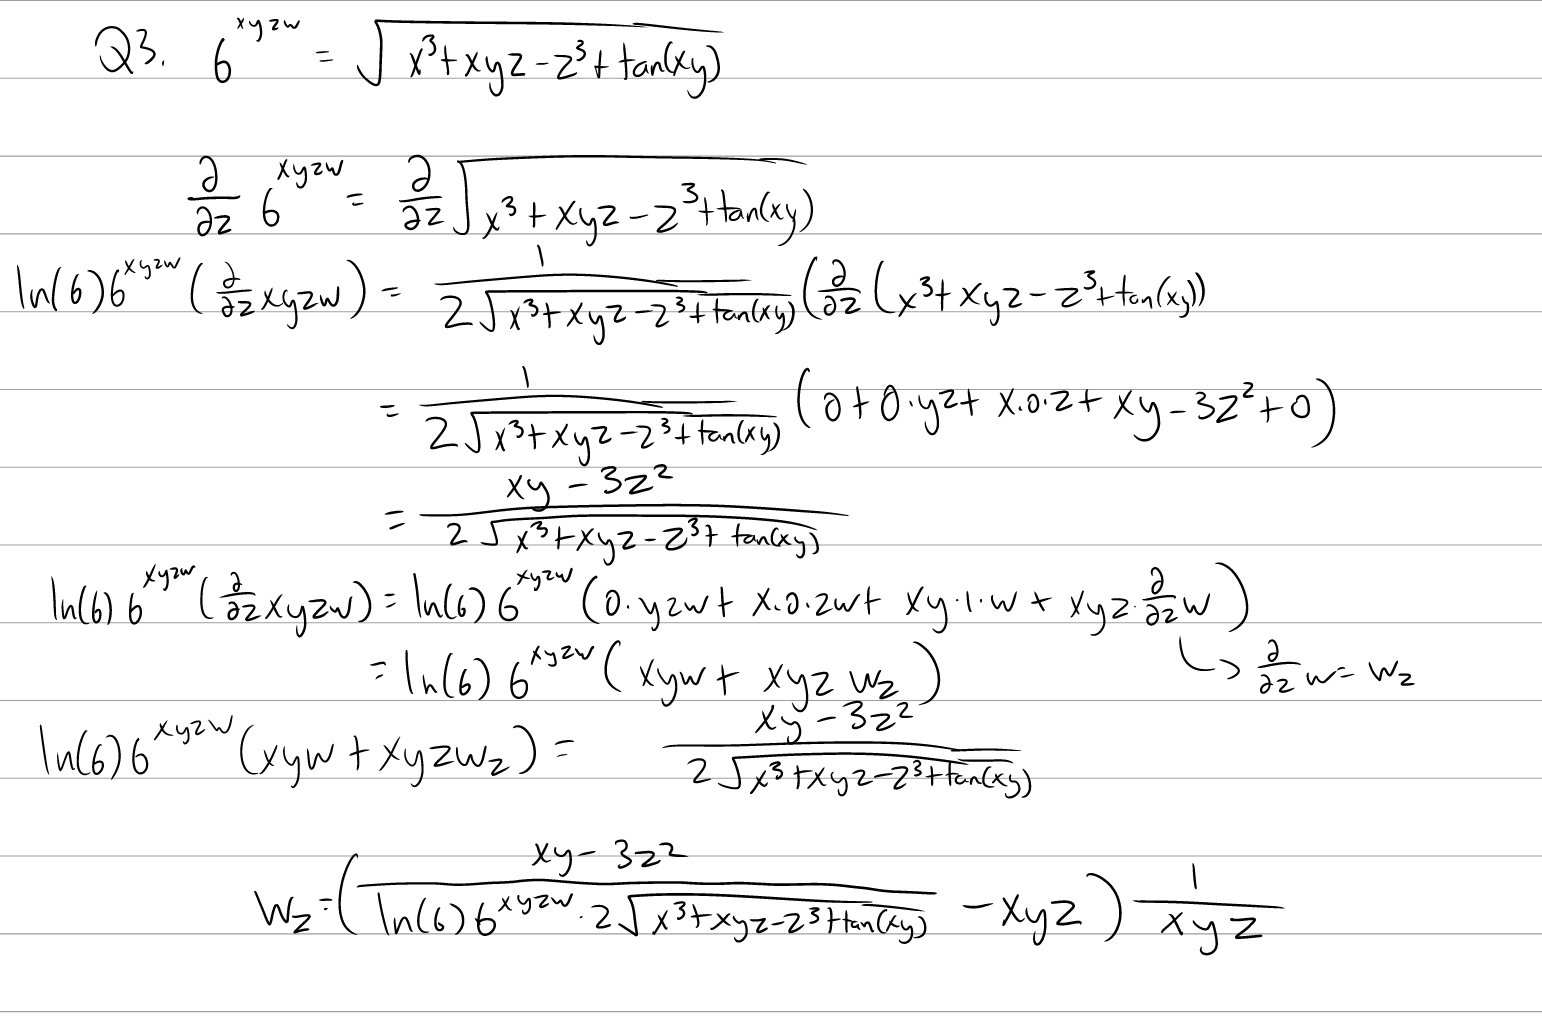 Q3. 6^{xyzw} = √(x³+xyz-z³+tan(xy))
∂/∂z 6^{xyzw} = ∂/∂z √(x³+xyz-z³+tan(xy))
ln(6)6^{xyzw}(∂/∂z xyzw) = 1/(2√(x³+xyz-z³+tan(xy))) (∂/∂z (x³+xyz-z³+tan(xy))
= 1/(2√(x³+xyz-z³+tan(xy))) (0+0·yz+x·0·z+xy-3z²+0)
= (xy-3z²)/(2√(x³+xyz-z³+tan(xy)))
ln(6)6^{xyzw}(∂/∂z xyzw) = ln(6)6^{xyzw}(0·yzw+x·0·zw+xy·1·w+xyz·∂/∂z w)
= ln(6)6^{xyzw}(xyw+xyz w_z) ↳ ∂/∂z w = w_z
ln(6)6^{xyzw}(xyw+xyzw_z) = (xy-3z²)/(2√(x³+xyz-z³+tan(xy)))
w_z = ((xy-3z²)/(ln(6)6^{xyzw}·2√(x³+xyz-z³+tan(xy))) - xyz) 1/(xyz)